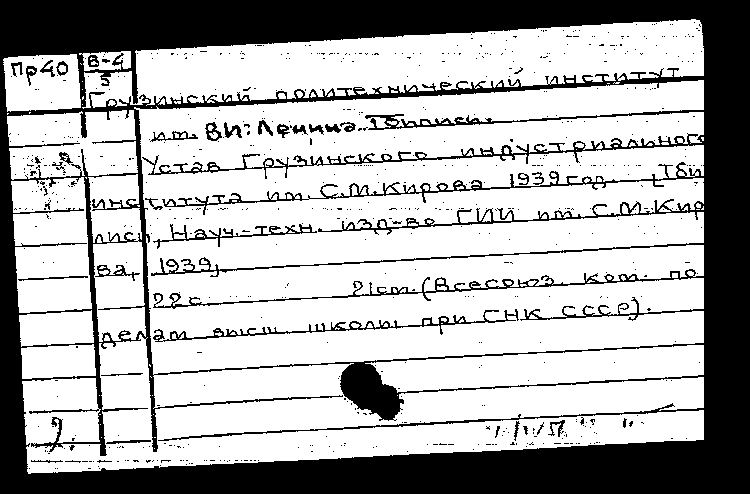 Пр40 В-4
5
Грузинский политехнический институт
им. В.И. Ленина. Тбилиси.
Устав Грузинского индустриального
института им. С.М. Кирова 1939 год. [Тби
лиси, Науч.-техн. изд-во ГИИ им. С.М. Кир
ва, 1939].
22 с. 21 см. (Всесоюз. ком. по
делам высш школы при СНК СССР).